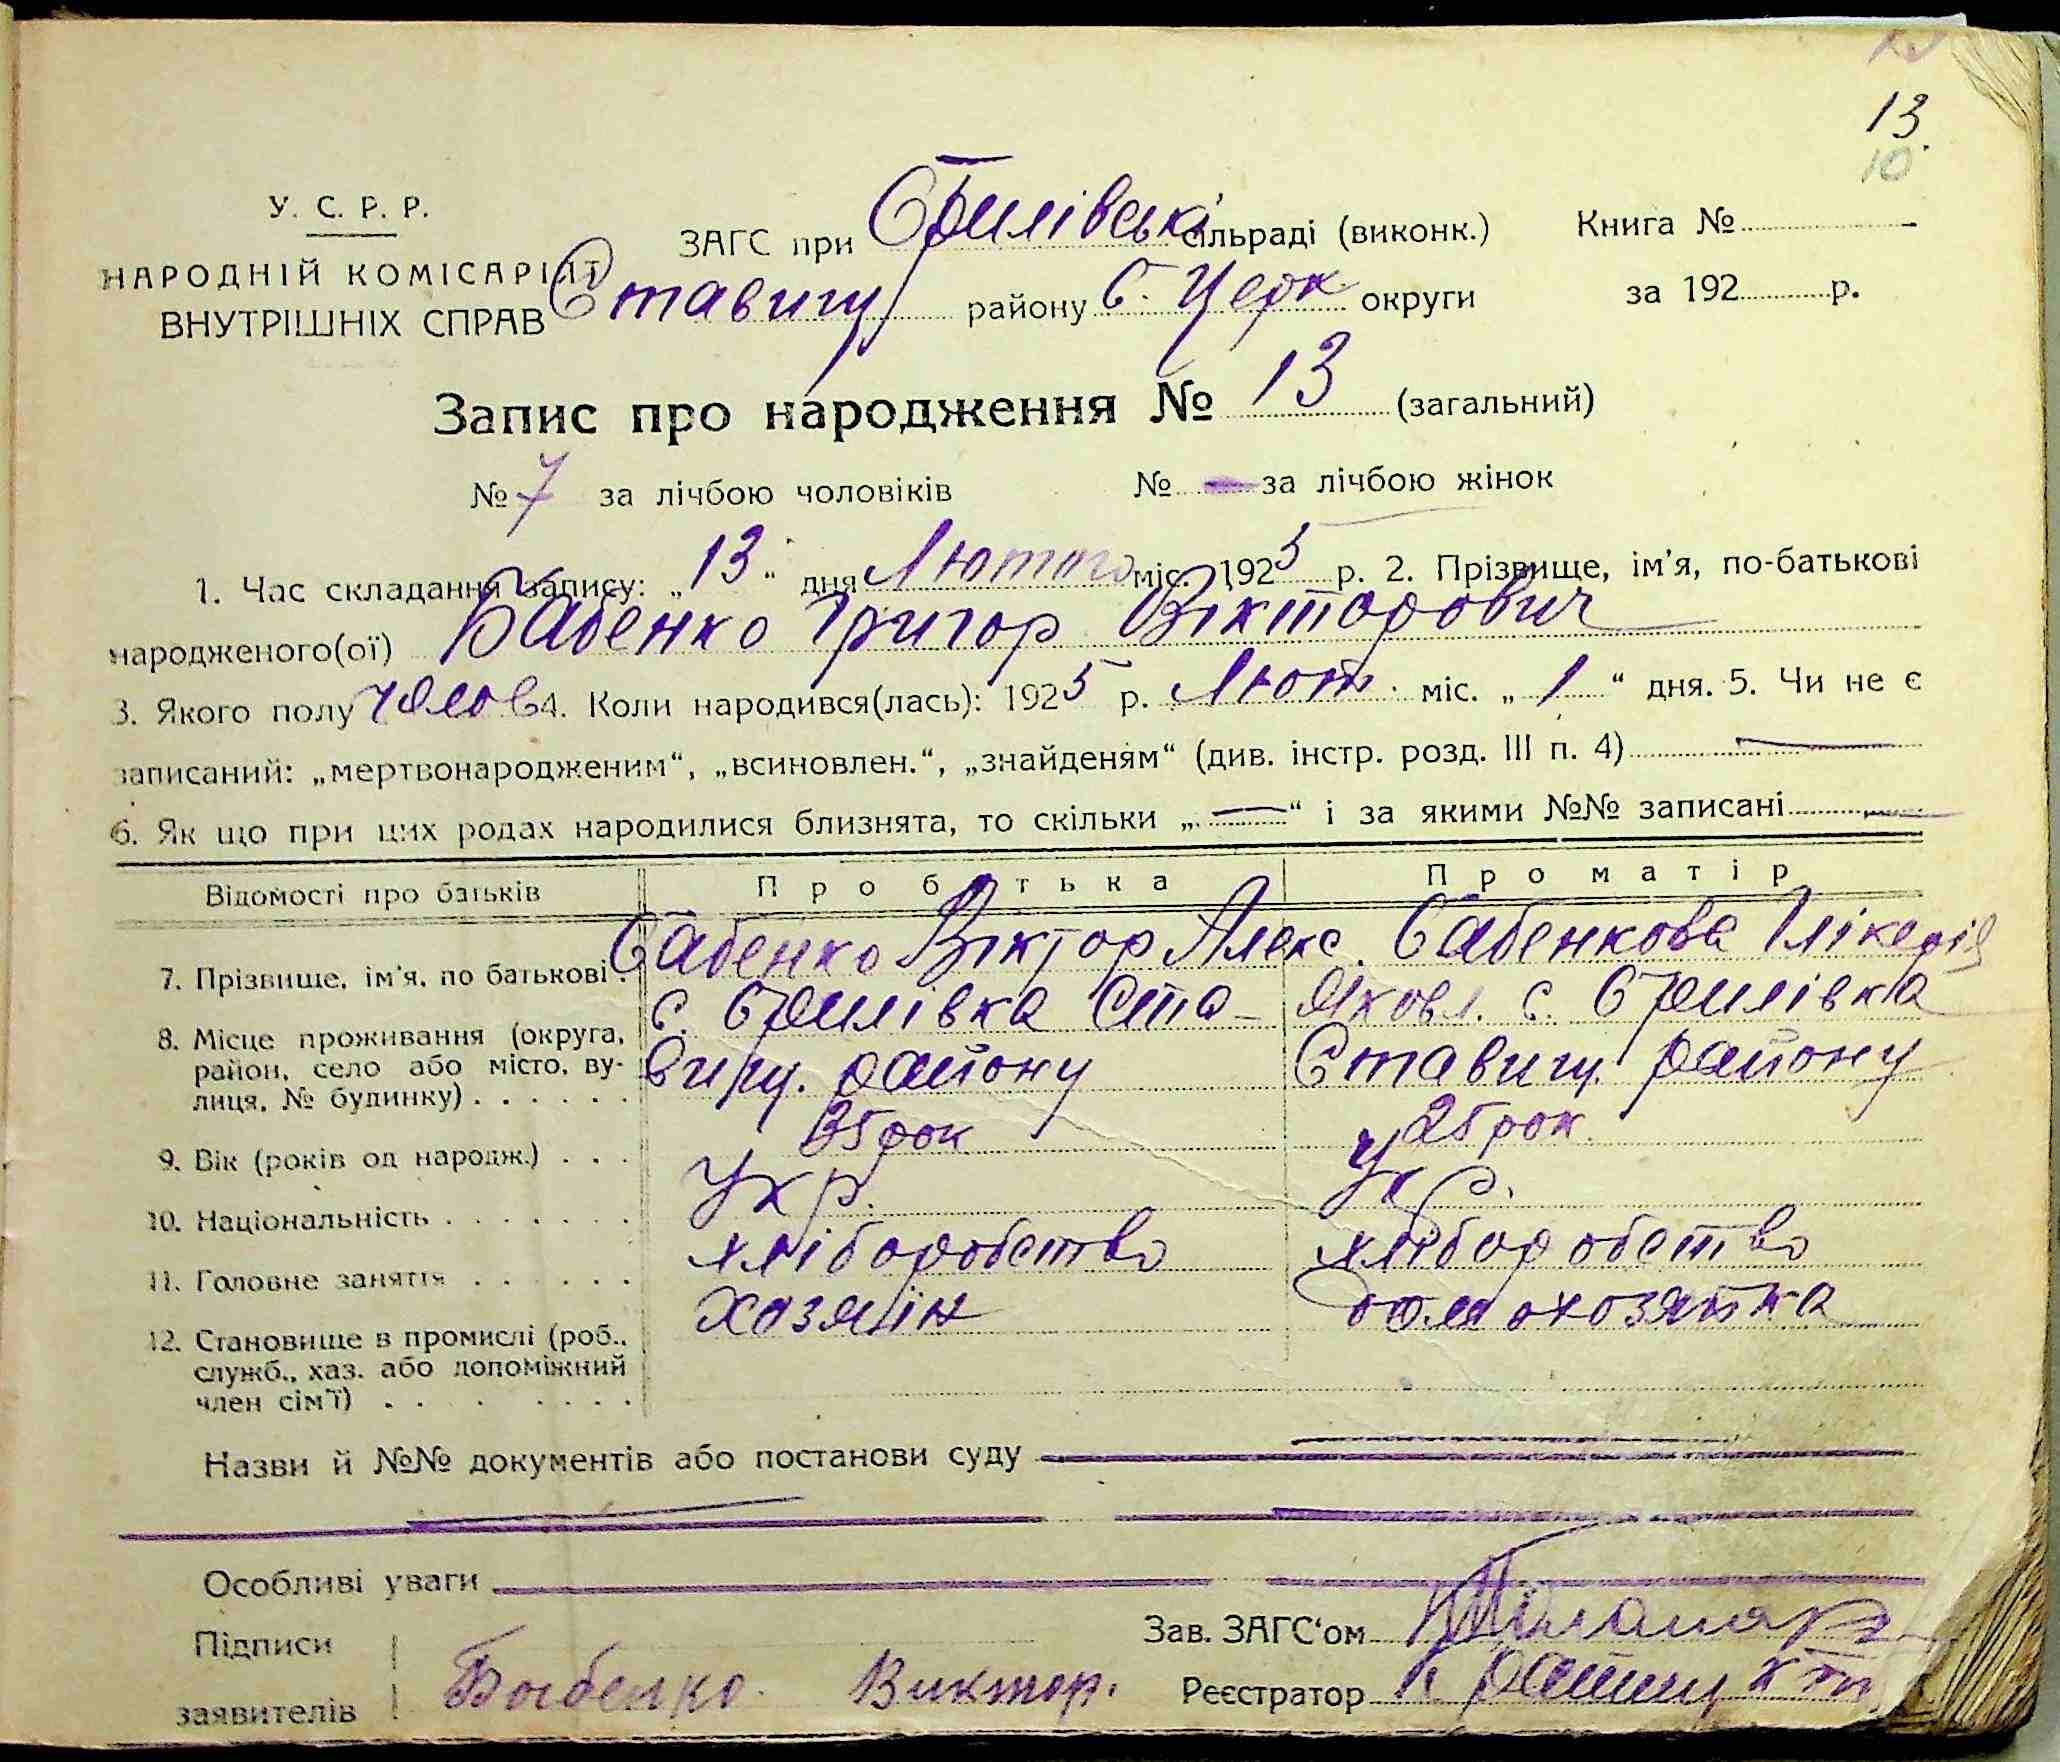 13
10
У. С. Р. Р.
НАРОДНІЙ КОМІСАРІЯТ
ВНУТРІШНІХ СПРАВ
ЗАГС при Стрилівські сільраді (виконк.) Книга №
Ставищ району Б. Церк. округи за 192 р.
Запис про народження № 13 (загальний)
№ 7 за лічбою чоловіків № — за лічбою жінок
1. Час складання запису: „13“ дня Лютого міс. 1925 р. 2. Прізвище, ім'я, по-батькові
народженого(ої) Бабенко Григор Вікторович
3. Якого полу чолов 4. Коли народився(лась): 1925 р. Лют. міс. „1“ дня. 5. Чи не є
записаний: „мертвонародженим“, „всиновлен.“, „знайденям“ (див. інстр. розд. III п. 4) —
6. Як що при цих родах народилися близнята, то скільки „—“ і за якими №№ записані —
Відомості про батьків Про батька Про матір
7. Прізвище, ім'я, по батькові. Бабенко Віктор Алекс. Бабенкова Глікерія
Яковл.
8. Місце проживання (округа, район, село або місто, вулиця, № будинку) с. Стрилівка Ставищ. району с. Стрилівка Ставищ. району
9. Вік (років од народж.) 35 рок 25 рок.
10. Національність Укр. Укр.
11. Головне заняття хліборобство хліборобство
12. Становище в промислі (роб., служб., хаз. або допоміжний член сім'ї) Хазяїн домохозяйка
Назви й №№ документів або постанови суду
Особливі уваги
Підписи заявителів Бабенко Виктор.
Зав. ЗАГС'ом
Реєстратор